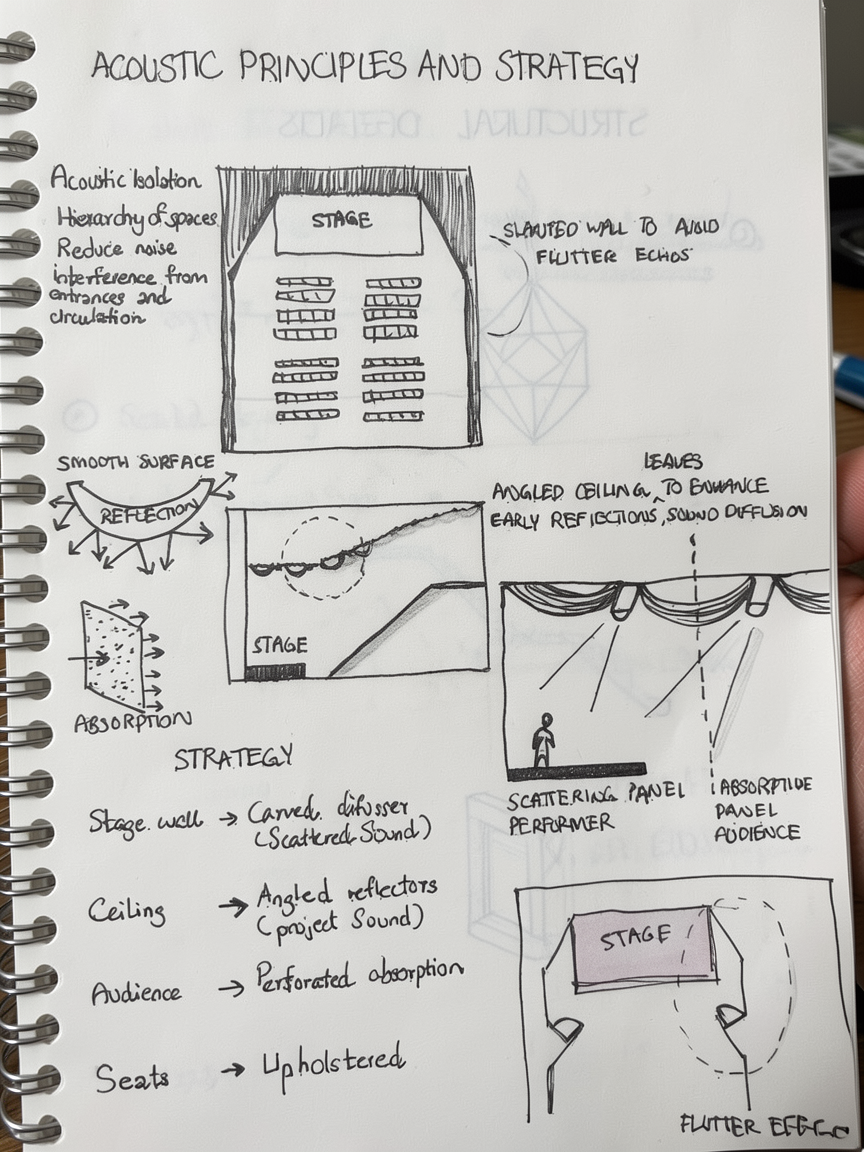 ACOUSTIC PRINCIPLES AND STRATEGY
STRUCTURAL
Acoustic Isolation
Hierarchy of spaces
Reduce noise
interference from
entrances and
circulation
STAGE
SLANTED WALL TO AVOID
FLUTTER ECHOS
SMOOTH SURFACE
REFLECTION
ABSORPTION
STAGE
LEAVES
ANGLED CEILING ^ TO ENHANCE
EARLY REFLECTIONS, SOUND DIFFUSION
SCATTERING PANEL
PERFORMER
ABSORPTIVE
PANEL
AUDIENCE
STRATEGY
Stage wall → Carved difusser
(Scattered Sound)
Ceiling → Angled reflectors
(project Sound)
Audience → Perforated absorption
Seats → Upholstered
STAGE
FLUTTER